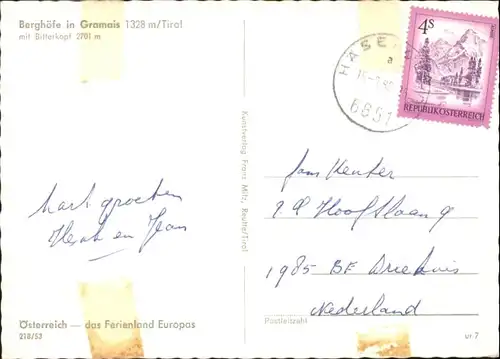 Berghöfe in Gramais 1328 m/Tirol
mit Bitterkopf 2701 m
4S
REPUBLIK ÖSTERREICH
HASE
a
6651
Kunstverlag Franz Milz, Reutte/Tirol
Hart. groeten
en Jean
Fam Kenter
P.C Hooftlaan 9
1985 BE Driehuis
Nederland
Postleitzahl
Österreich — das Ferienland Europas
218/53
ur 7